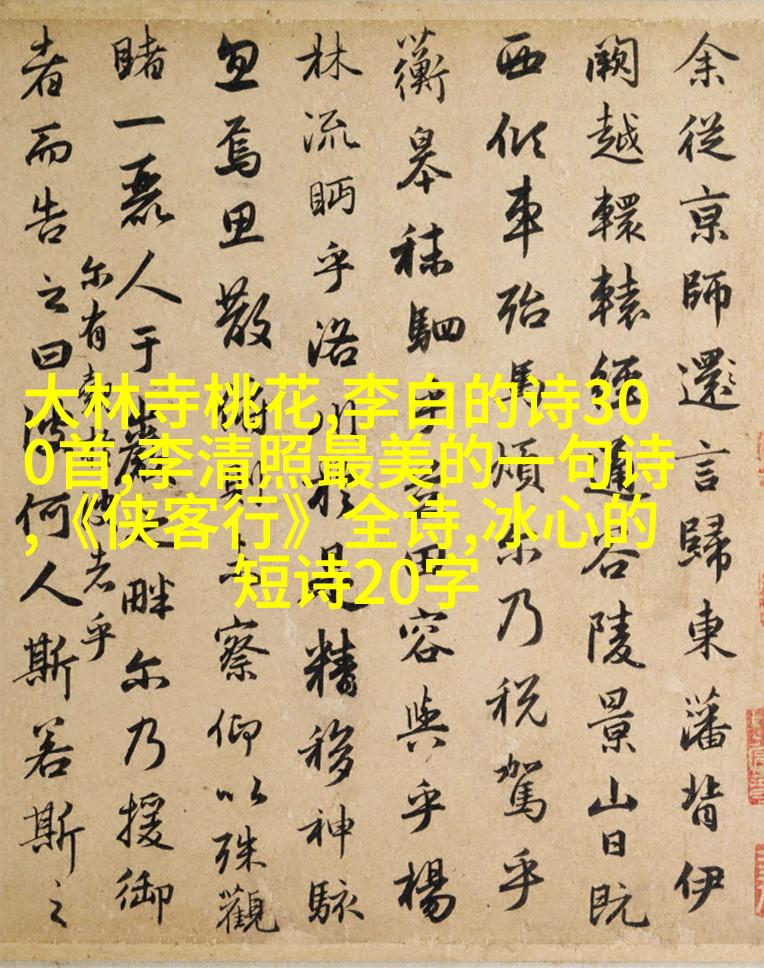 大林寺桃花,李白的诗30
0首,李清照最美的一句诗
,《侠客行》全诗,冰心的
短诗20字
余從京師還言歸東藩背伊
闕越轘轅經通谷陵景山日既
西傾車殆馬煩尔乃税駕乎
蘅皋秣駟乎芝田容與乎楊
林流眄乎洛川於是精移神駭
忽焉思散俯則未察仰以殊觀
睹一麗人于巖之畔尔乃援御
者而告之曰彼何人斯若斯之
尔有彼者乎